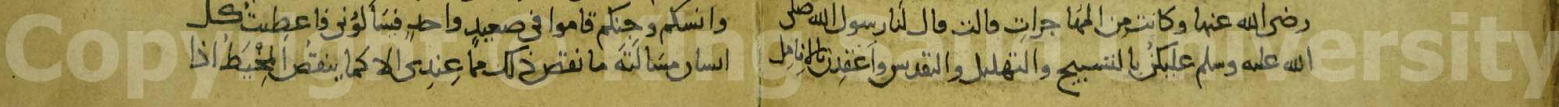 رضى الله عنها وكانت من المهاجرات قالت قال لنا رسول الله صلى
الله عليه وسلم عليكن بالتسبيح والتهليل والتقديس واعقدن بالانامل
وانسكم وجنكم قاموا فى صعيد واحد فسألونى فاعطيت كل
انسان مسألته ما نقص ذلك مما عندى الا كما ينقص المخيط اذا